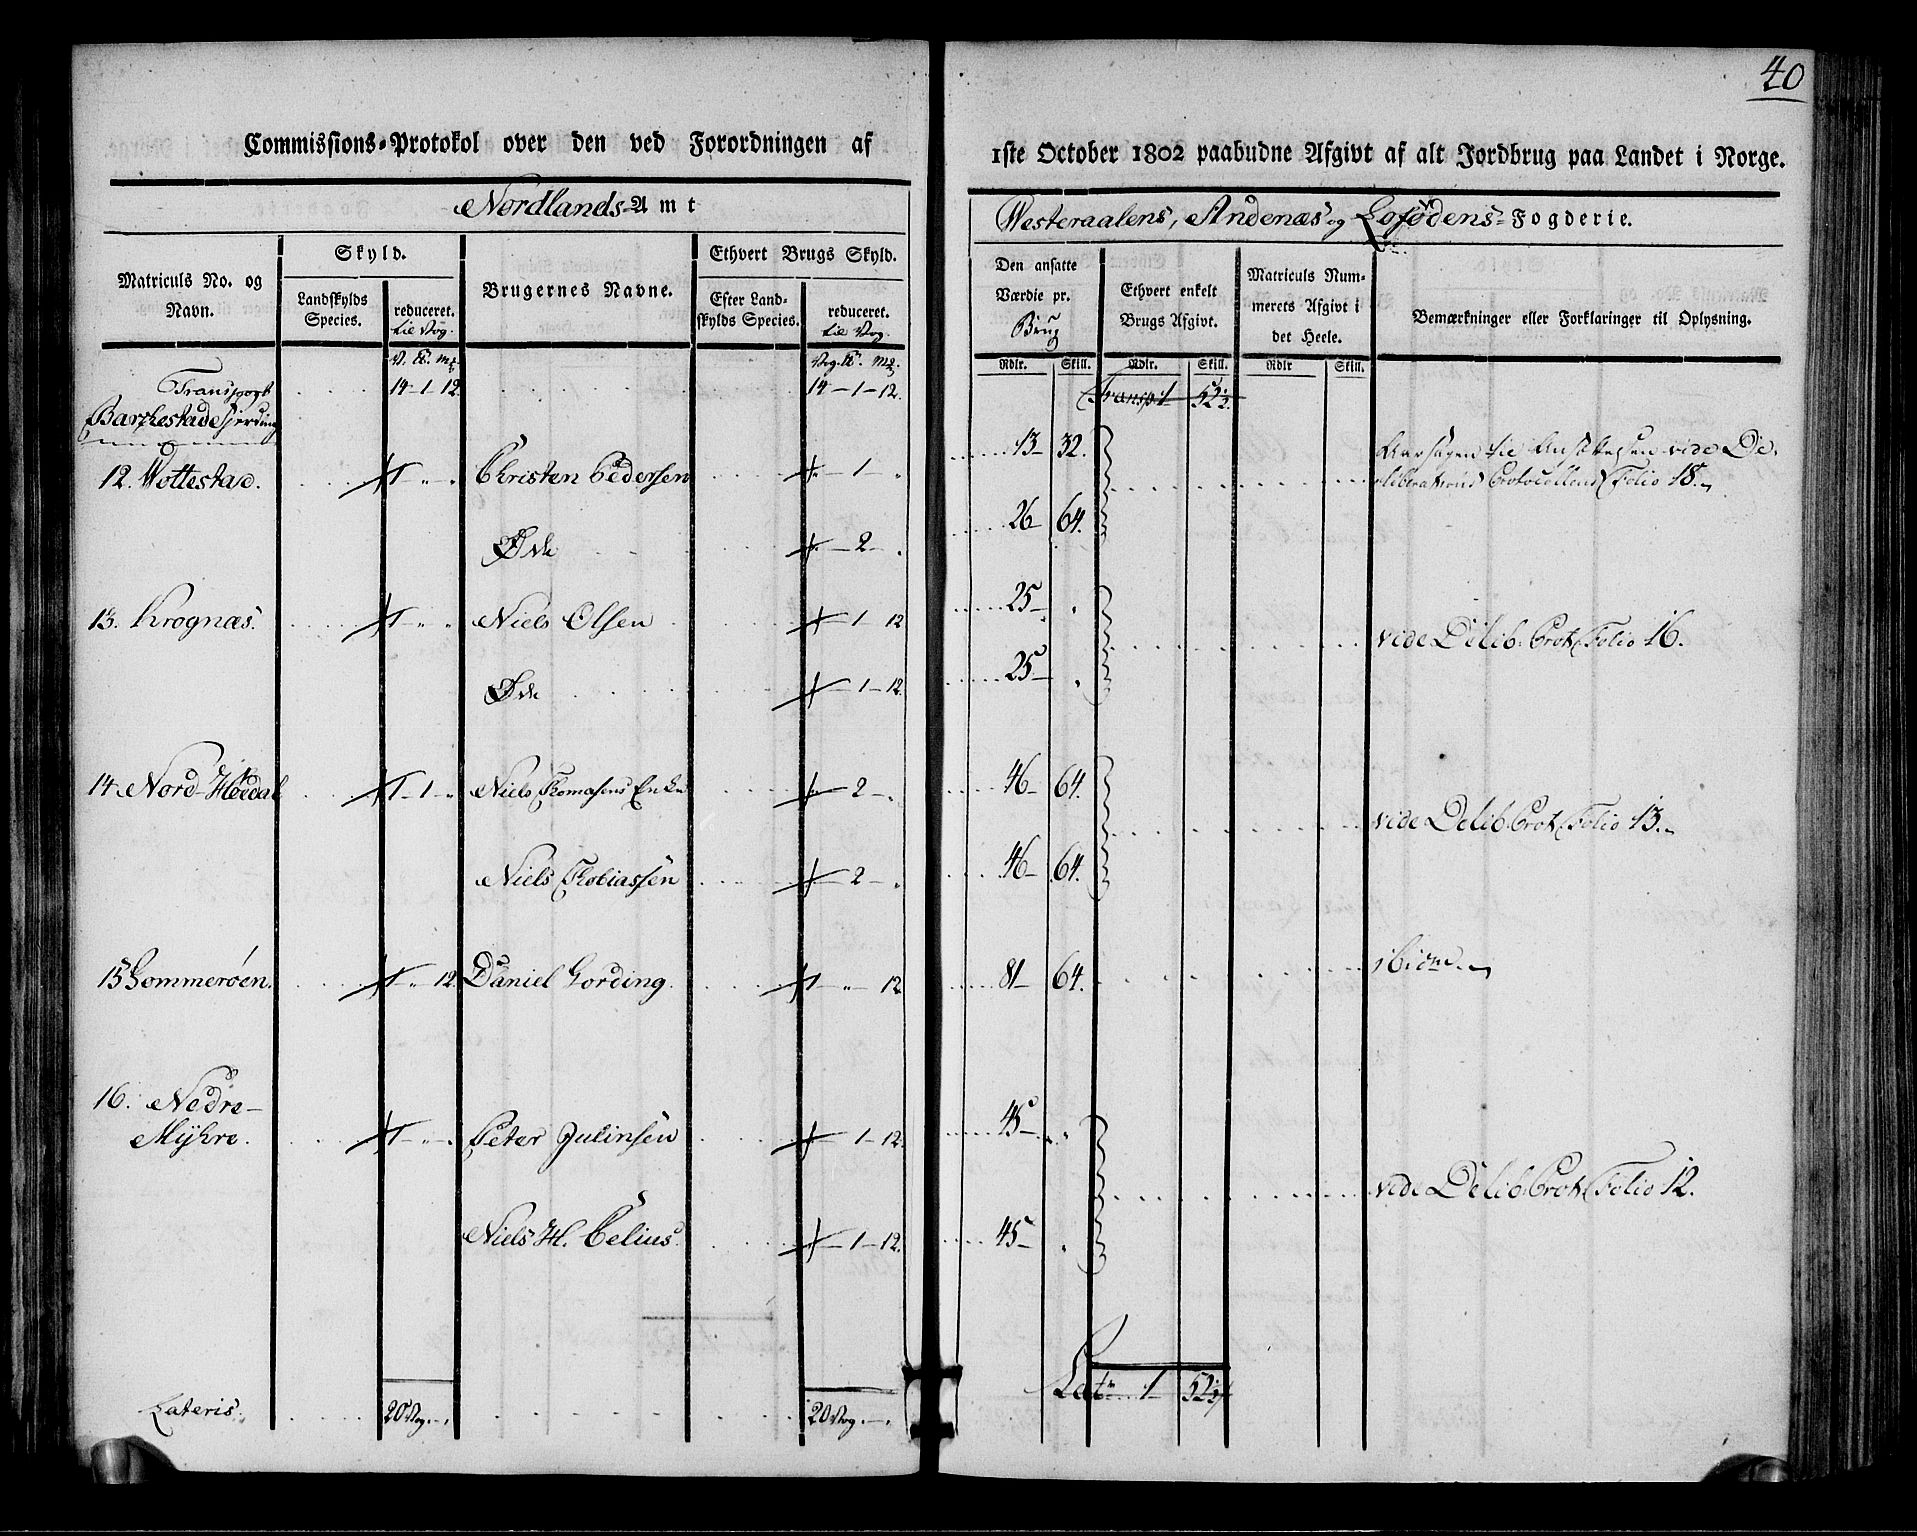 40
Commissions-Protokol over den ved Forordningen af
1ste October 1802 paabudne Afgivt af alt Jordbrug paa Landet i Norge.
Nordlands-Amt
Westeraalens, Andenæs og Lofodens-Fogderie.
Matriculs No. og Navn.
Skyld.
Landskylds Species.
reduceret. til Vog.
Brugernes Navne.
Ethvert Brugs Skyld.
Efter Landskylds Species.
reduceret. til Vog
Den ansatte Værdie pr. Brug
Ethvert enkelt Brugs Afgivt.
Matriculs Nummerets Afgivt i det Heele.
Bemærkninger eller Forklaringer til Oplysning.
Rdlr. Skill. Rdlr. Skill. Rdlr Skill.
Transport 14-1-12. 14-1-12. Transp: 1 52½
Barkestad Fjerding
12. Vottestad. 1 " " Christen Pedersen - 1 - " 13 - 32. Aarsagen til Ansættelsen vide De-
liberations Protocollens Folio 18.
Øde - 2 - 26 - 64.
13. Krognæs. 1 " " Niels Olsen - 1 - 12 25 - " vide Delib: Prot: Folio 16.
Øde - 1 - 12. 25 - "
14. Nord-Høedal 1 - 1 - " Niels Thomasens Enke - 2 - " 46 - 64. vide Delib: Prot: Folio 13.
Niels Tobiassen - 2 - " 46 - 64.
15 Sommerøen. 1 " 12 Daniel Gording. 1 - " 12 81 - 64. ibidm
16. Nedre-
Myhre. 1 - " - Peter Julinsen - 1 - 12. 45 - " vide Delib: Prot: Folio 12.
Niels H. Celius. - 1 - 12. 45 - "
Lateris. 20 Vog. - 20 Vog. - Lats 1 - 52½